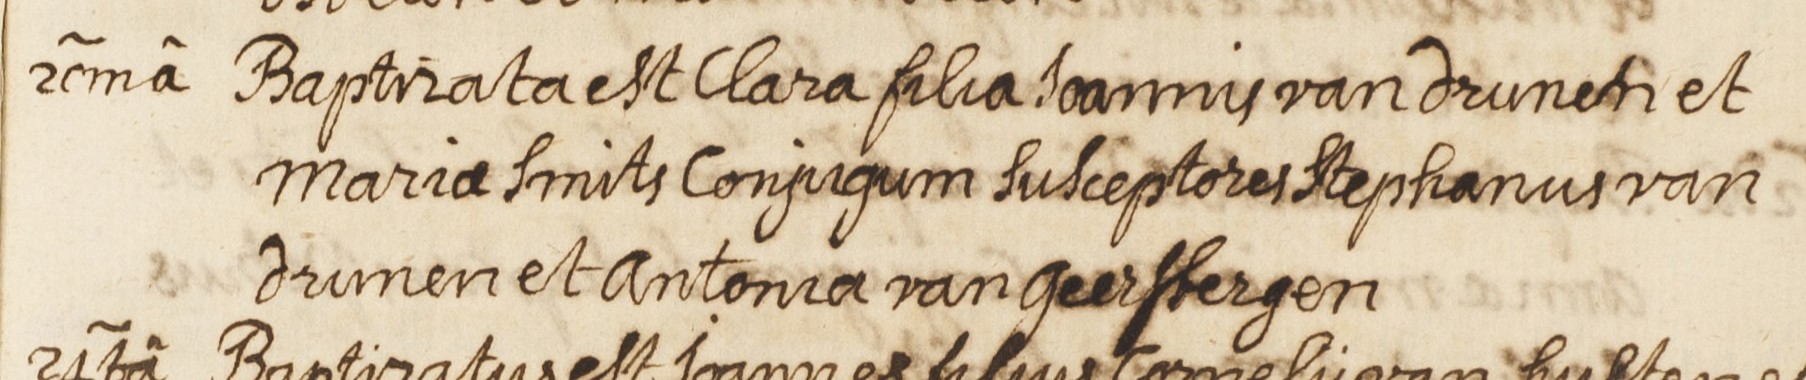 Baptizata est Clara filia Joannis van drunen et
Mariæ Smits Conjugum Susceptores Stephanus van
drunen et Antonia van Geersbergen
Baptizatus est Joannes filius Cornelii van